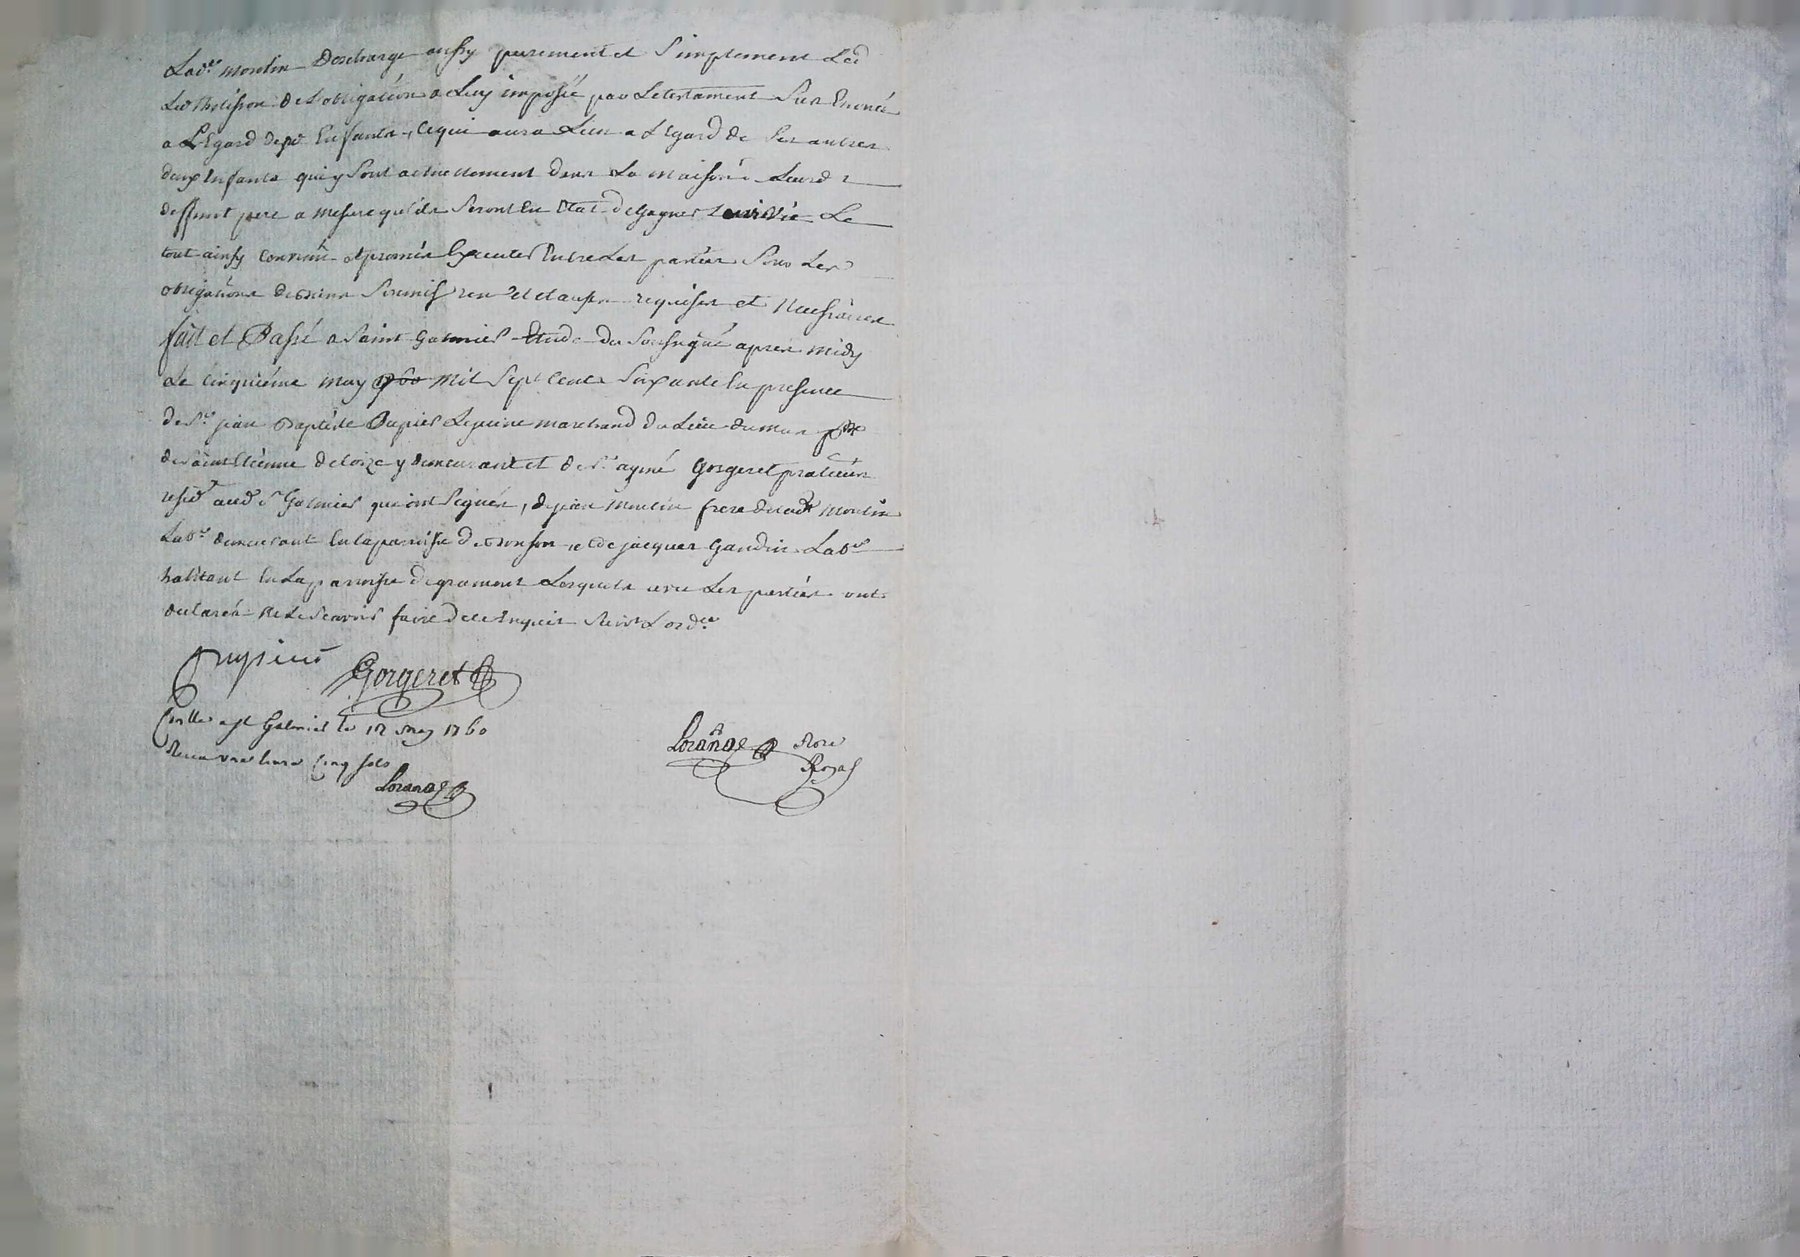 Lad.e moulin Descharge aussy purement et Simplement Led
Led Thelisson de L'obligation a Luy imposée par Letestament Sus Enoncé
a L'Egard desd Enfants, Cequi aura Lieu a L'Egard de Ses autres
deux Enfants quiy Sont actuellement dans La maison Leurd
deffunt pere a mesure qu'ils Seront En Etat de Gagner Leur Vie Le
tout ainsy Convenu et promis Executer Entre Les parties Sous Les
obligations de biens Soumis ren et clauses requises et Necessaires
fait et Passé a Saint Galmier Etude du Soussigné apres midy
Le Cinquieme may 1760 Mil Sept Cents Soixante En presence
de S.r jean Baptiste Dupuier Lejeune marchand du Lieu
de Saint Etienne y demeurant et de S.r aymé Gorgeret praticien
resid.t aud S.t Galmier qui ont Signés, de jean Moulin frere de lad Moulin
Lab.r demeurant En Laparroisse de Bonson et de jacques Gandin Lab.r
habitant En La parroisse de gramont Lesquels avec Les parties ont
declaré Ne Le Scavoir faire de ce Enquis Suivt L'ord.ce
Gorgeret
Conllé a st Galmier le 12 may 1760
Receu une livre Cinq sols
Lorange
Lorange Nore
Royal